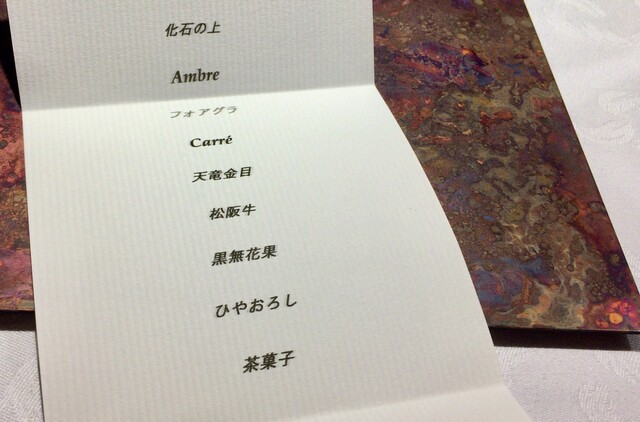 化石の上
Ambre
フォアグラ
Carré
天竜金目
松阪牛
黒無花果
ひやおろし
茶菓子